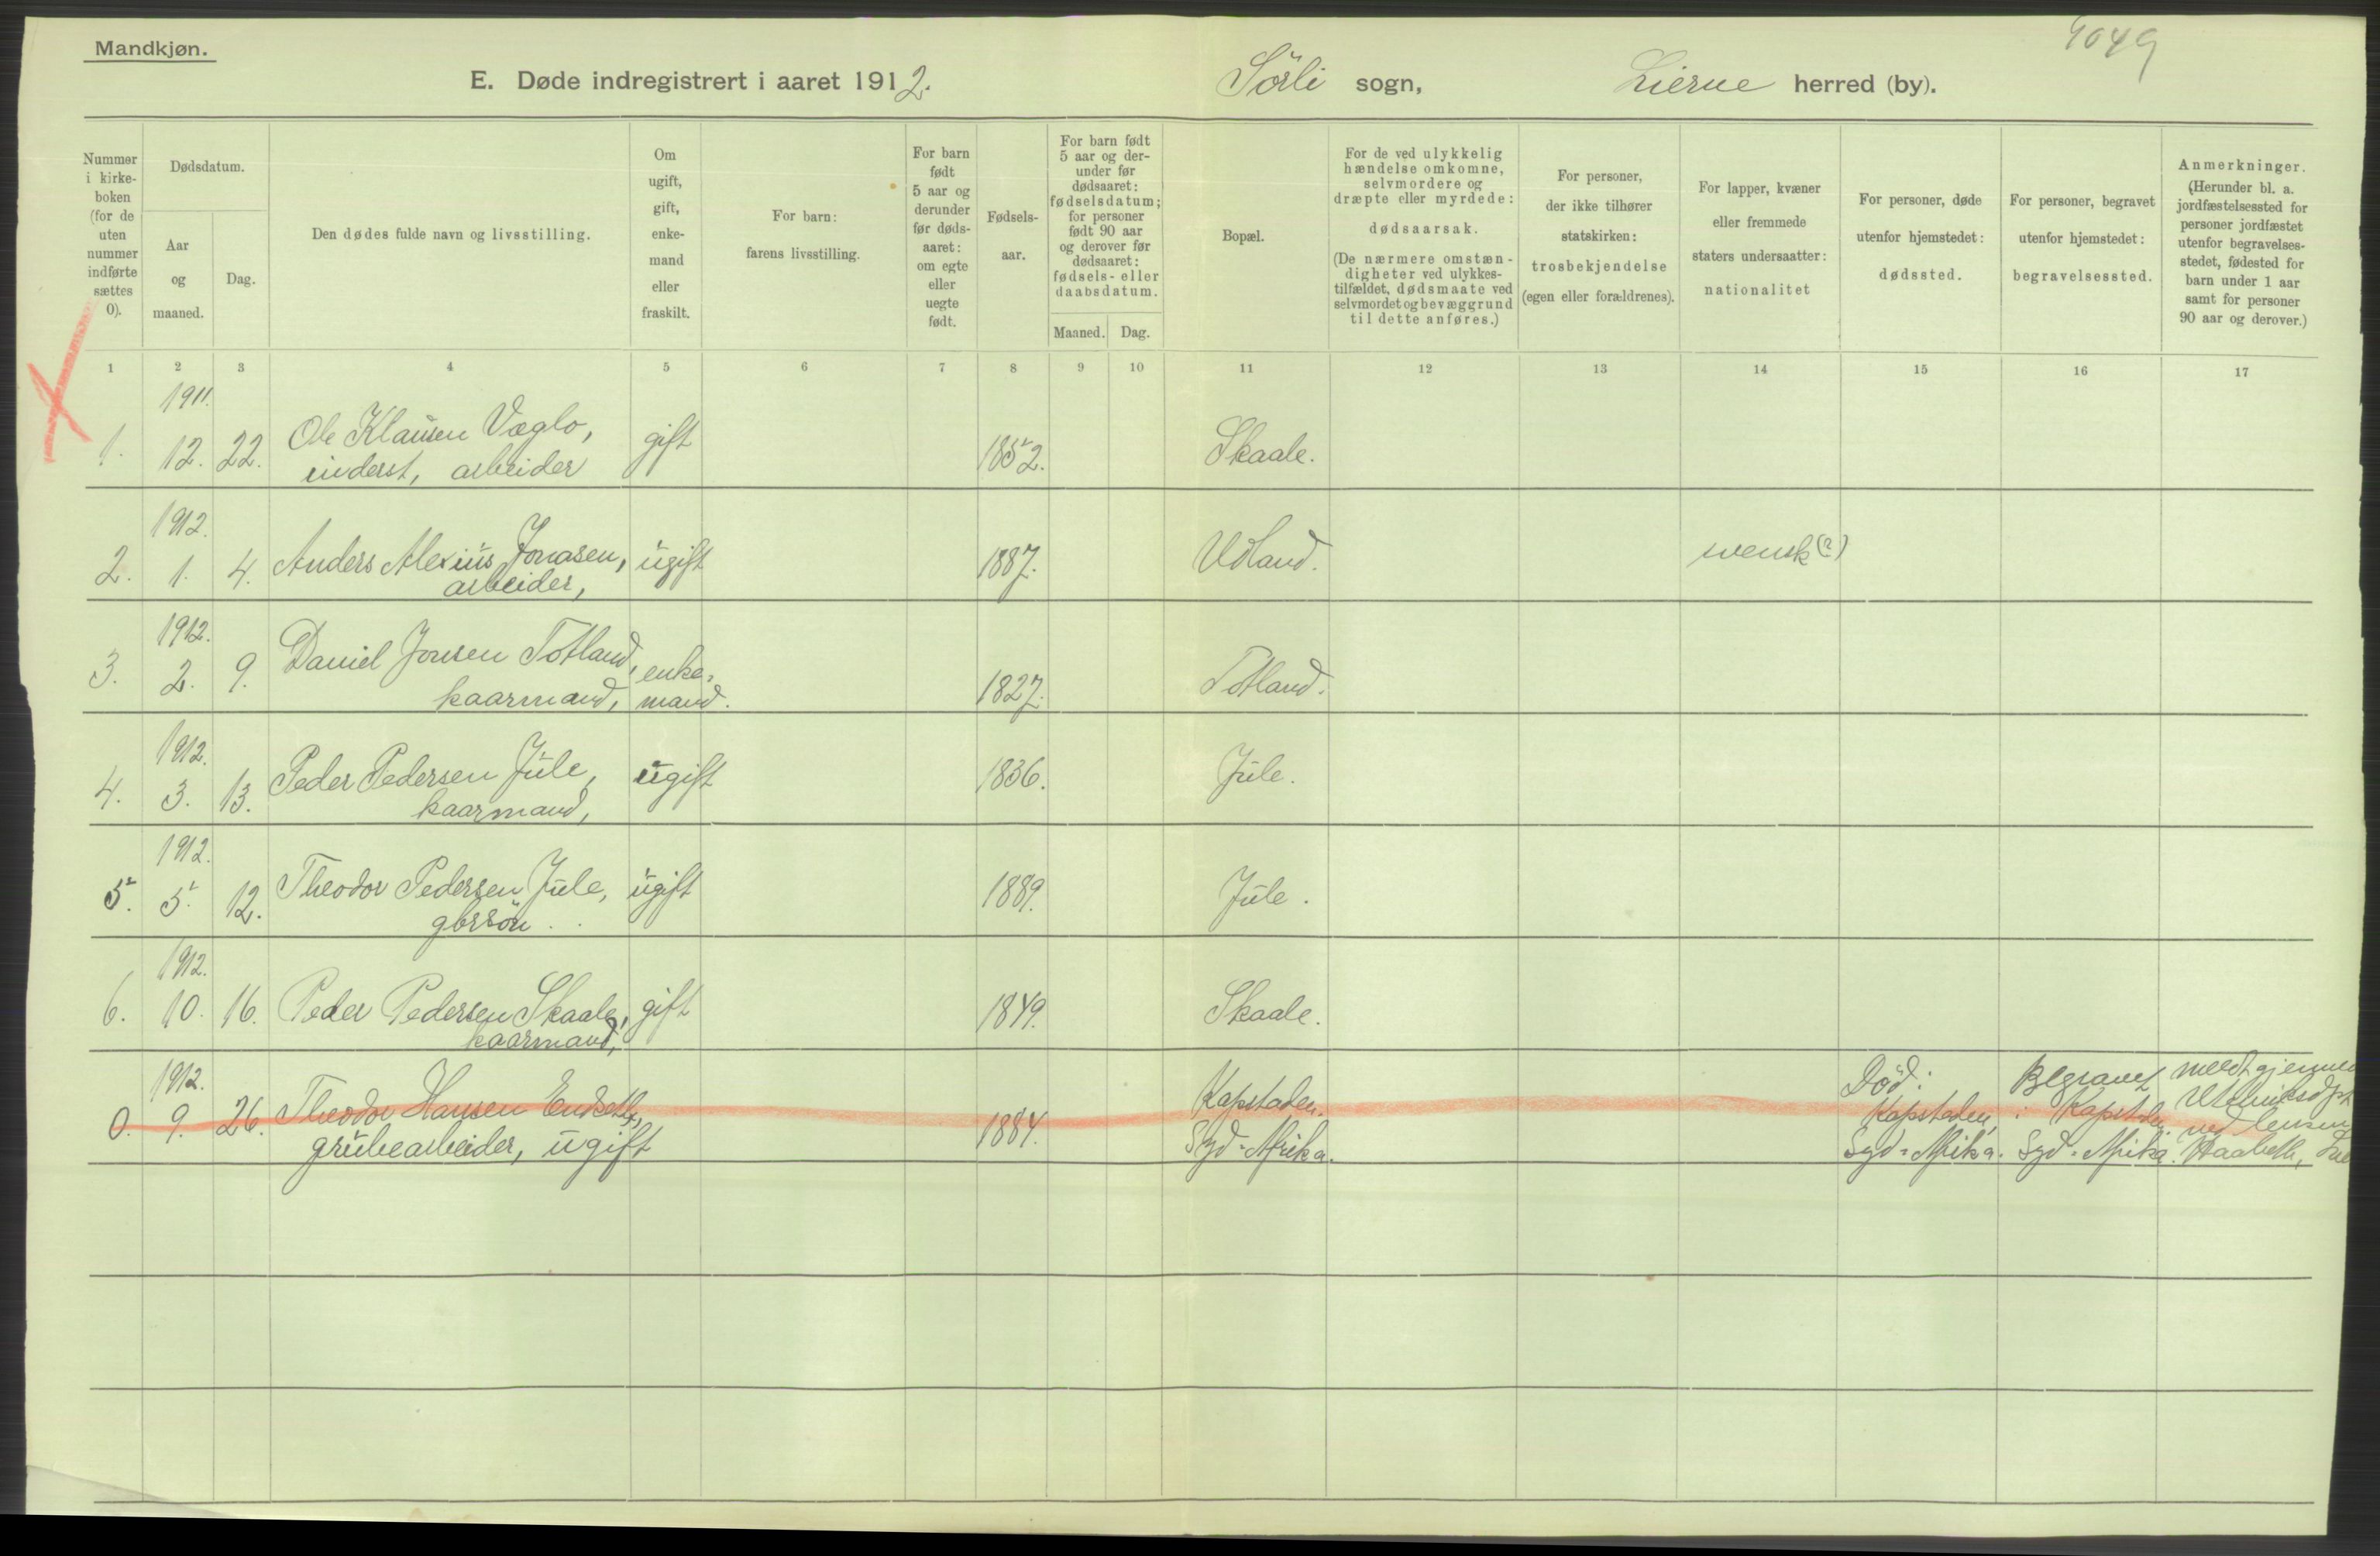 Mandkjøn.
9049
E. Døde indregistrert i aaret 1912.
Sörli sogn,
Lierne herred (by).
Nummer i kirke-boken (for de uten nummer indførte sættes 0).
Dødsdatum.
Aar og maaned.
Dag.
Den dødes fulde navn og livsstilling.
Om ugift, gift, enke-mand eller fraskilt.
For barn: farens livsstilling.
For barn født 5 aar og derunder før døds-aaret: om egte eller uegte født.
Fødsels-aar.
For barn født 5 aar og der-under før dødsaaret: fødselsdatum; for personer født 90 aar og derover før dødsaaret: fødsels- eller daabsdatum.
Maaned.
Dag.
Bopæl.
For de ved ulykkelig hændelse omkomne, selvmordere og dræpte eller myrdede: dødsaarsak. (De nærmere omstæn-digheter ved ulykkes-tilfældet, dødsmaate ved selvmordet og bevæggrund til dette anføres.)
For personer, der ikke tilhører statskirken: trosbekjendelse (egen eller forældrenes).
For lapper, kvæner eller fremmede staters undersaatter: nationalitet
For personer, døde utenfor hjemstedet: dødssted.
For personer, begravet utenfor hjemstedet: begravelsessted.
Anmerkninger. (Herunder bl. a. jordfæstelsessted for personer jordfæstet utenfor begravelses-stedet, fødested for barn under 1 aar samt for personer 90 aar og derover.)
1 2 3 4 5 6 7 8 9 10 11 12 13 14 15 16 17
1911.
1. 12. 22. Ole Klausen Væglo, gift 1852. Skaale.
inderst, arbeider
1912.
2. 1. 4. Anders Alexius Jonasen, ugift 1887. Udland. svensk (?)
arbeider,
1912.
3. 2. 9. Daniel Jonsen Totland, enke- 1827. Totland.
kaarmand, mand.
1912.
4. 3. 13. Peder Pedersen Jule, ugift 1836. Jule.
kaarmand,
1912.
5. 5. 12. Theodor Pedersen Jule, ugift 1889. Jule.
gbrsön.
1912.
6. 10. 16. Peder Pedersen Skaale, gift 1849. Skaale.
kaarmand,
1912.
0. 9. 26. Theodor Hansen 1884. Kapstaden.
grubearbeider, ugift Syd-Afrika.
Död: Kapstaden, Syd-Afrika.
Begravet i Kapstaden. Syd-Afrika.
meldt
ved